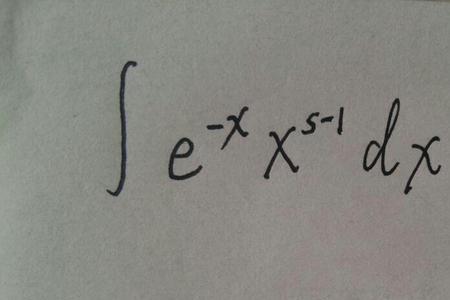 ∫ e^{-x} x^{s-1} dx